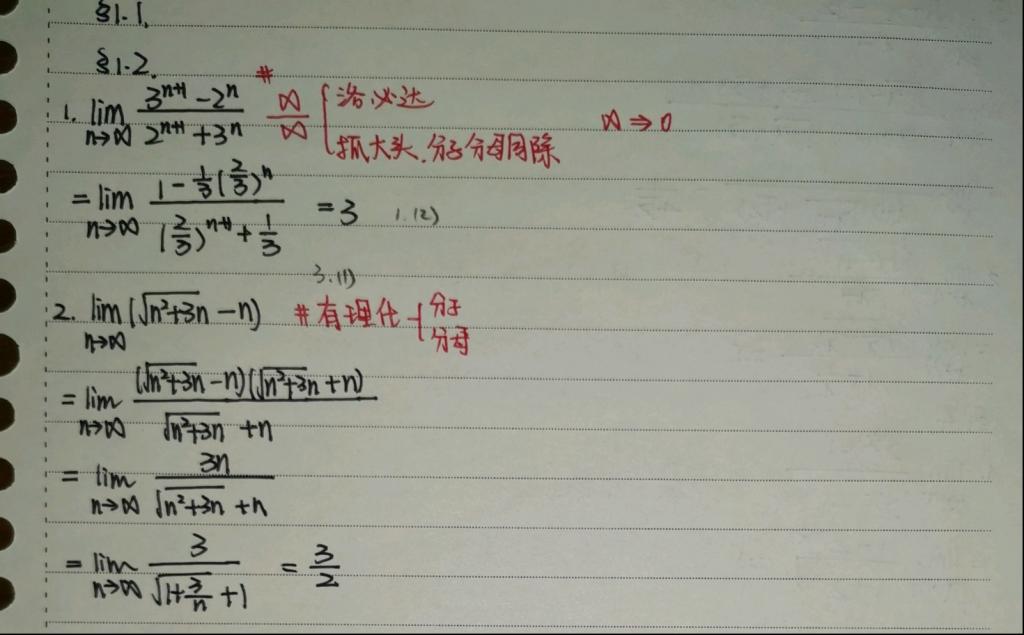 §1.1.
§1.2.
1. lim n→∞ (3^(n+1) - 2^n)/(2^(n+1) + 3^n) # ∞/∞ { 洛必达
抓大头.分子分母同除 ∞ → 0
= lim n→∞ (1 - 1/3(2/3)^n)/((2/3)^(n+1) + 1/3) = 3 1.(2)
3.(1)
2. lim n→∞ (√(n²+3n) - n) # 有理化 { 分子
分母
= lim n→∞ ((√(n²+3n) - n)(√(n²+3n) + n))/(√(n²+3n) + n)
= lim n→∞ 3n/(√(n²+3n) + n)
= lim n→∞ 3/(√(1+3/n) + 1) = 3/2